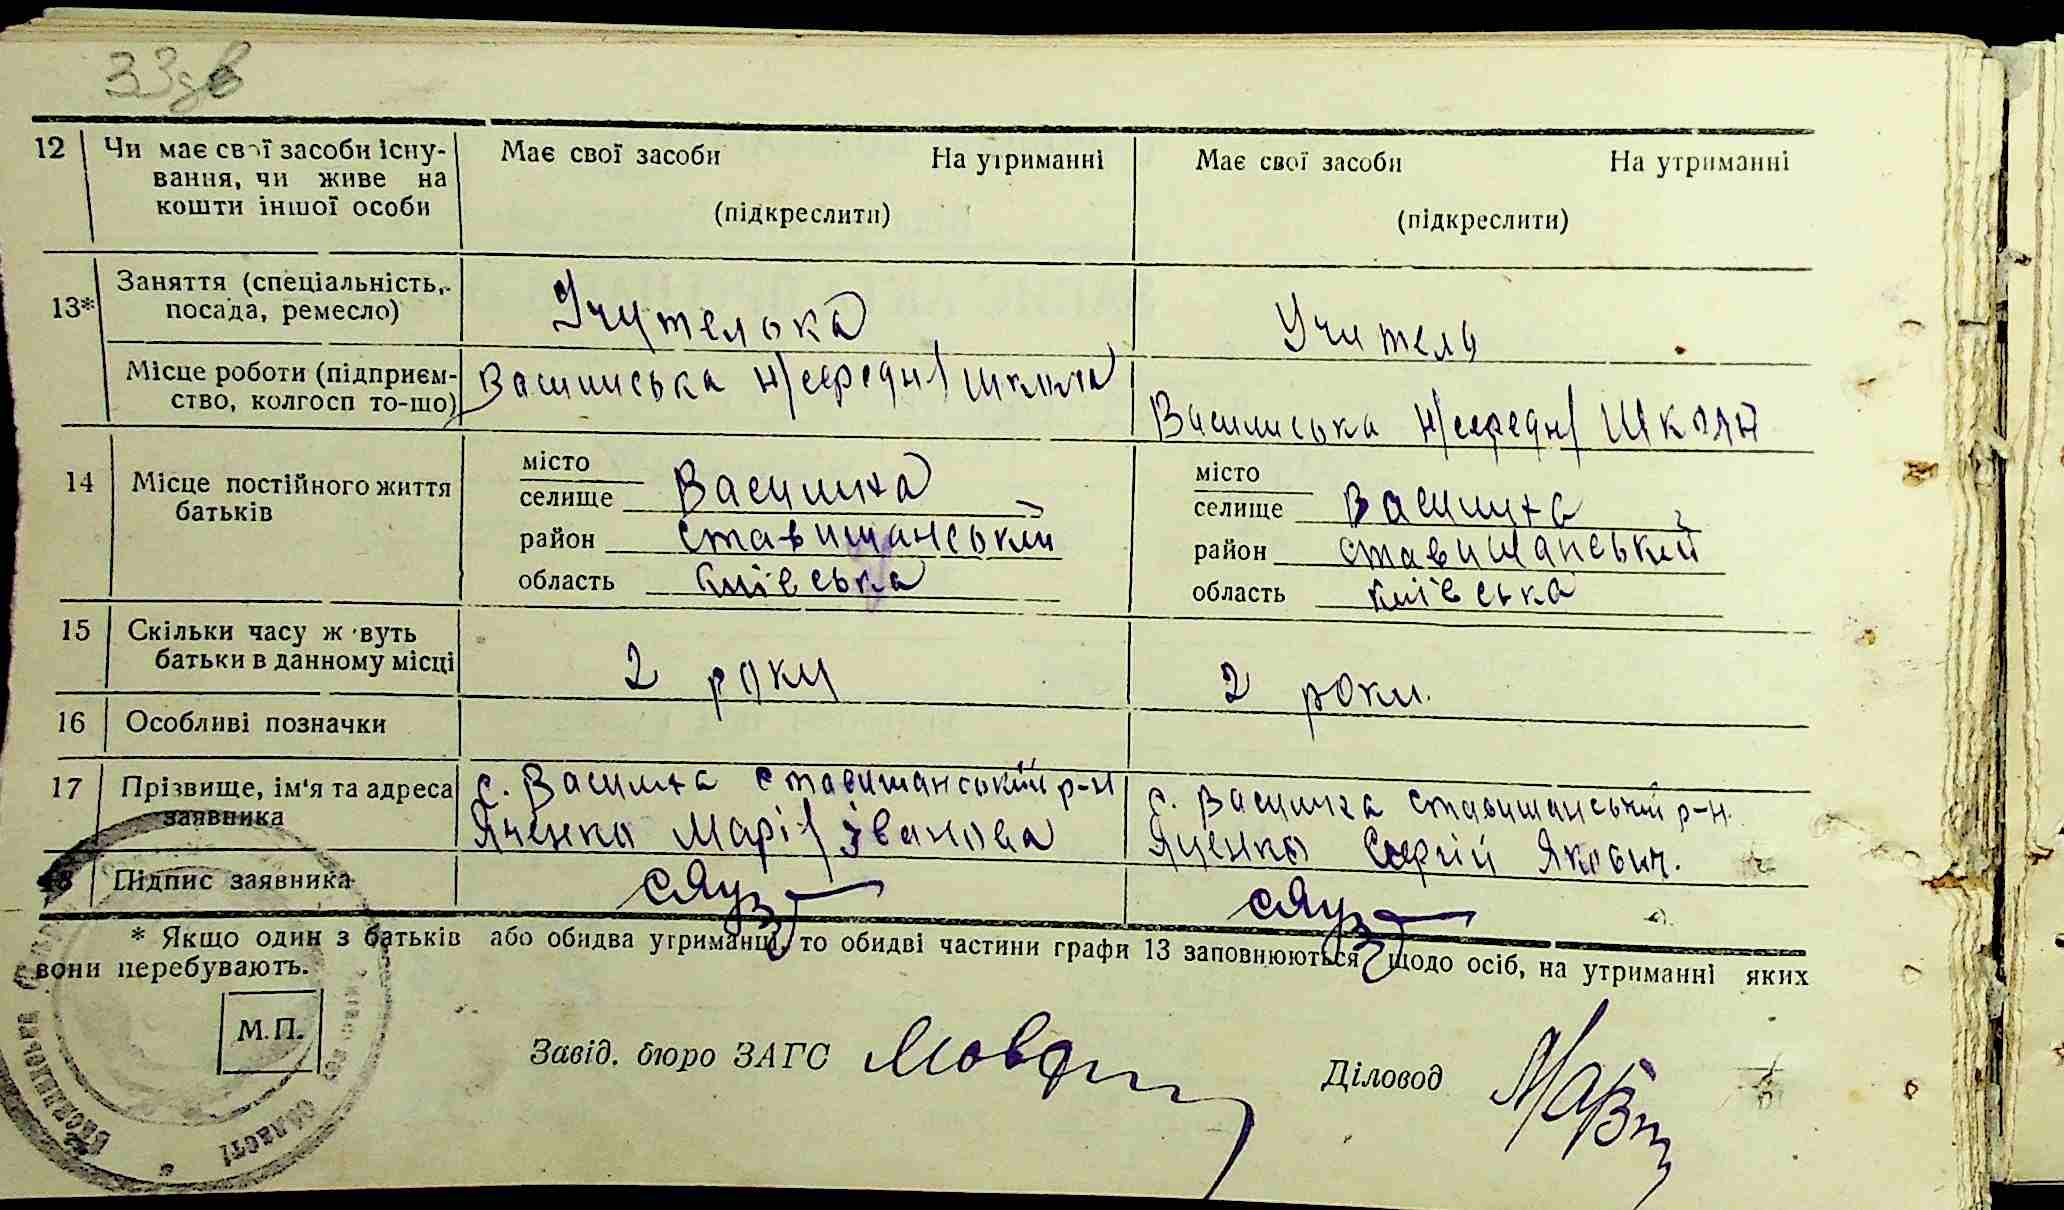 33зв
12 Чи має свої засоби існу- Має свої засоби На утриманні Має свої засоби На утриманні
вання, чи живе на
кошти іншої особи (підкреслити) (підкреслити)
13* Заняття (спеціальність, Учителька Учитель
посада, ремесло)
Місце роботи (підприєм- Василиська н/середн/ школа Василиська н/середн/ школа
ство, колгосп то-що)
14 Місце постійного життя місто місто
батьків селище Василиха селище Василиха
район Ставищанський район Ставищанський
область Київська область Київська
15 Скільки часу ж вуть 2 роки 2 роки.
батьки в данному місці
16 Особливі позначки
17 Прізвище, ім'я та адреса с. Василиха Ставищанський р-н с. Василиха Ставищанський р-н.
заявника Яценко Марія Іванова Яценко Сергій Якович.
18 Підпис заявника
* Якщо один з батьків або обидва утриманці, то обидві частини графи 13 заповнюються щодо осіб, на утриманні яких
вони перебувають.
М.П. Завід. бюро ЗАГС Діловод
області